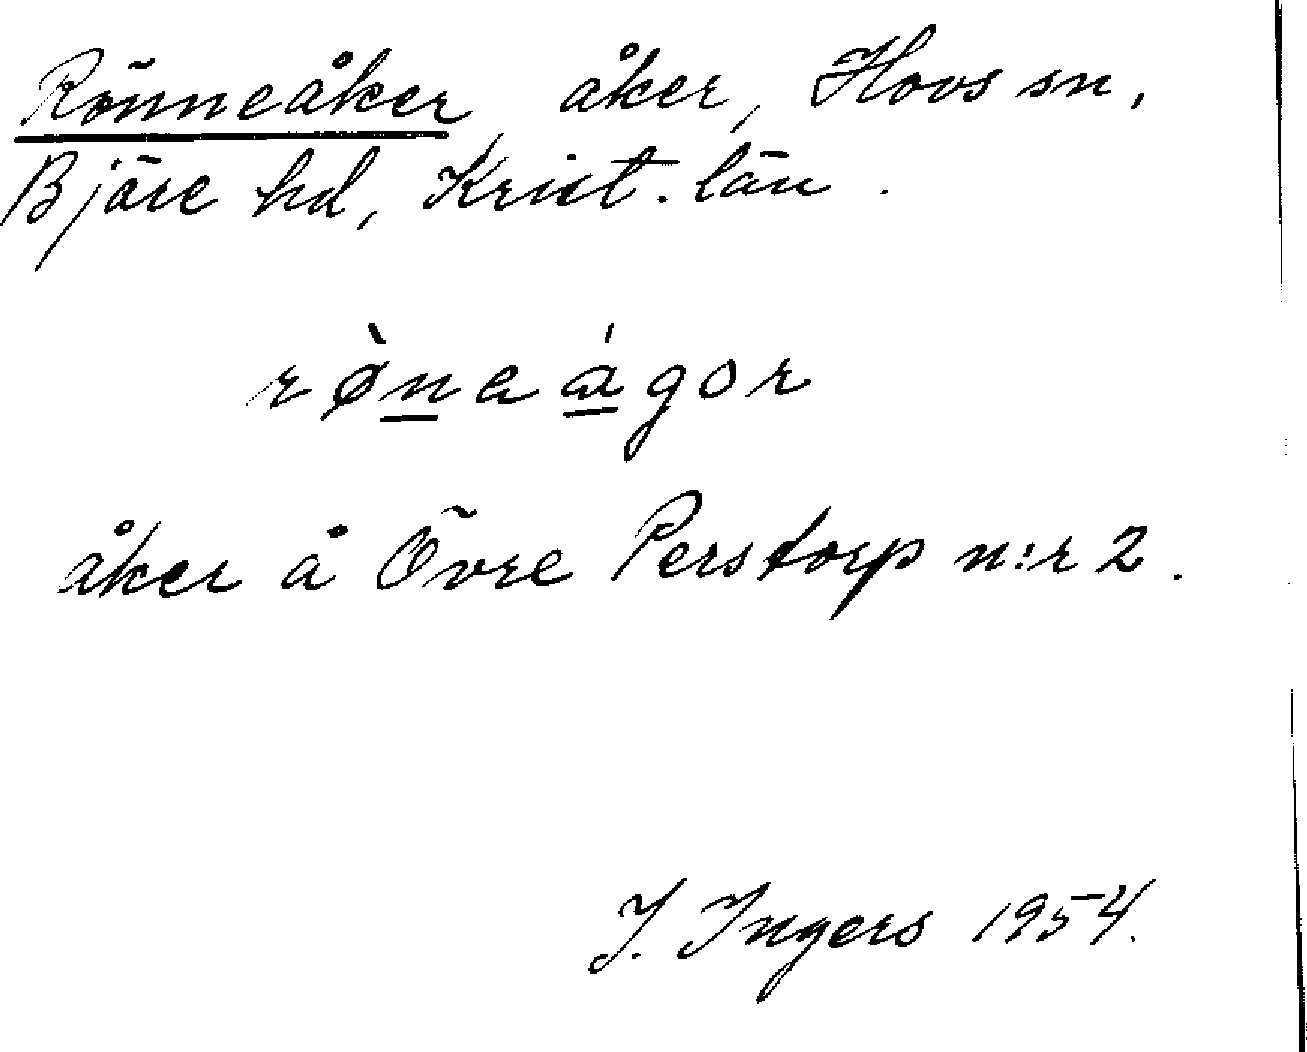 Rönneåker, åker, Hovs sn,
Bjäre hd, Krist. län.
rø̀neágor
åker å Övre Perstorp n:r 2.
I. Ingers 1954.